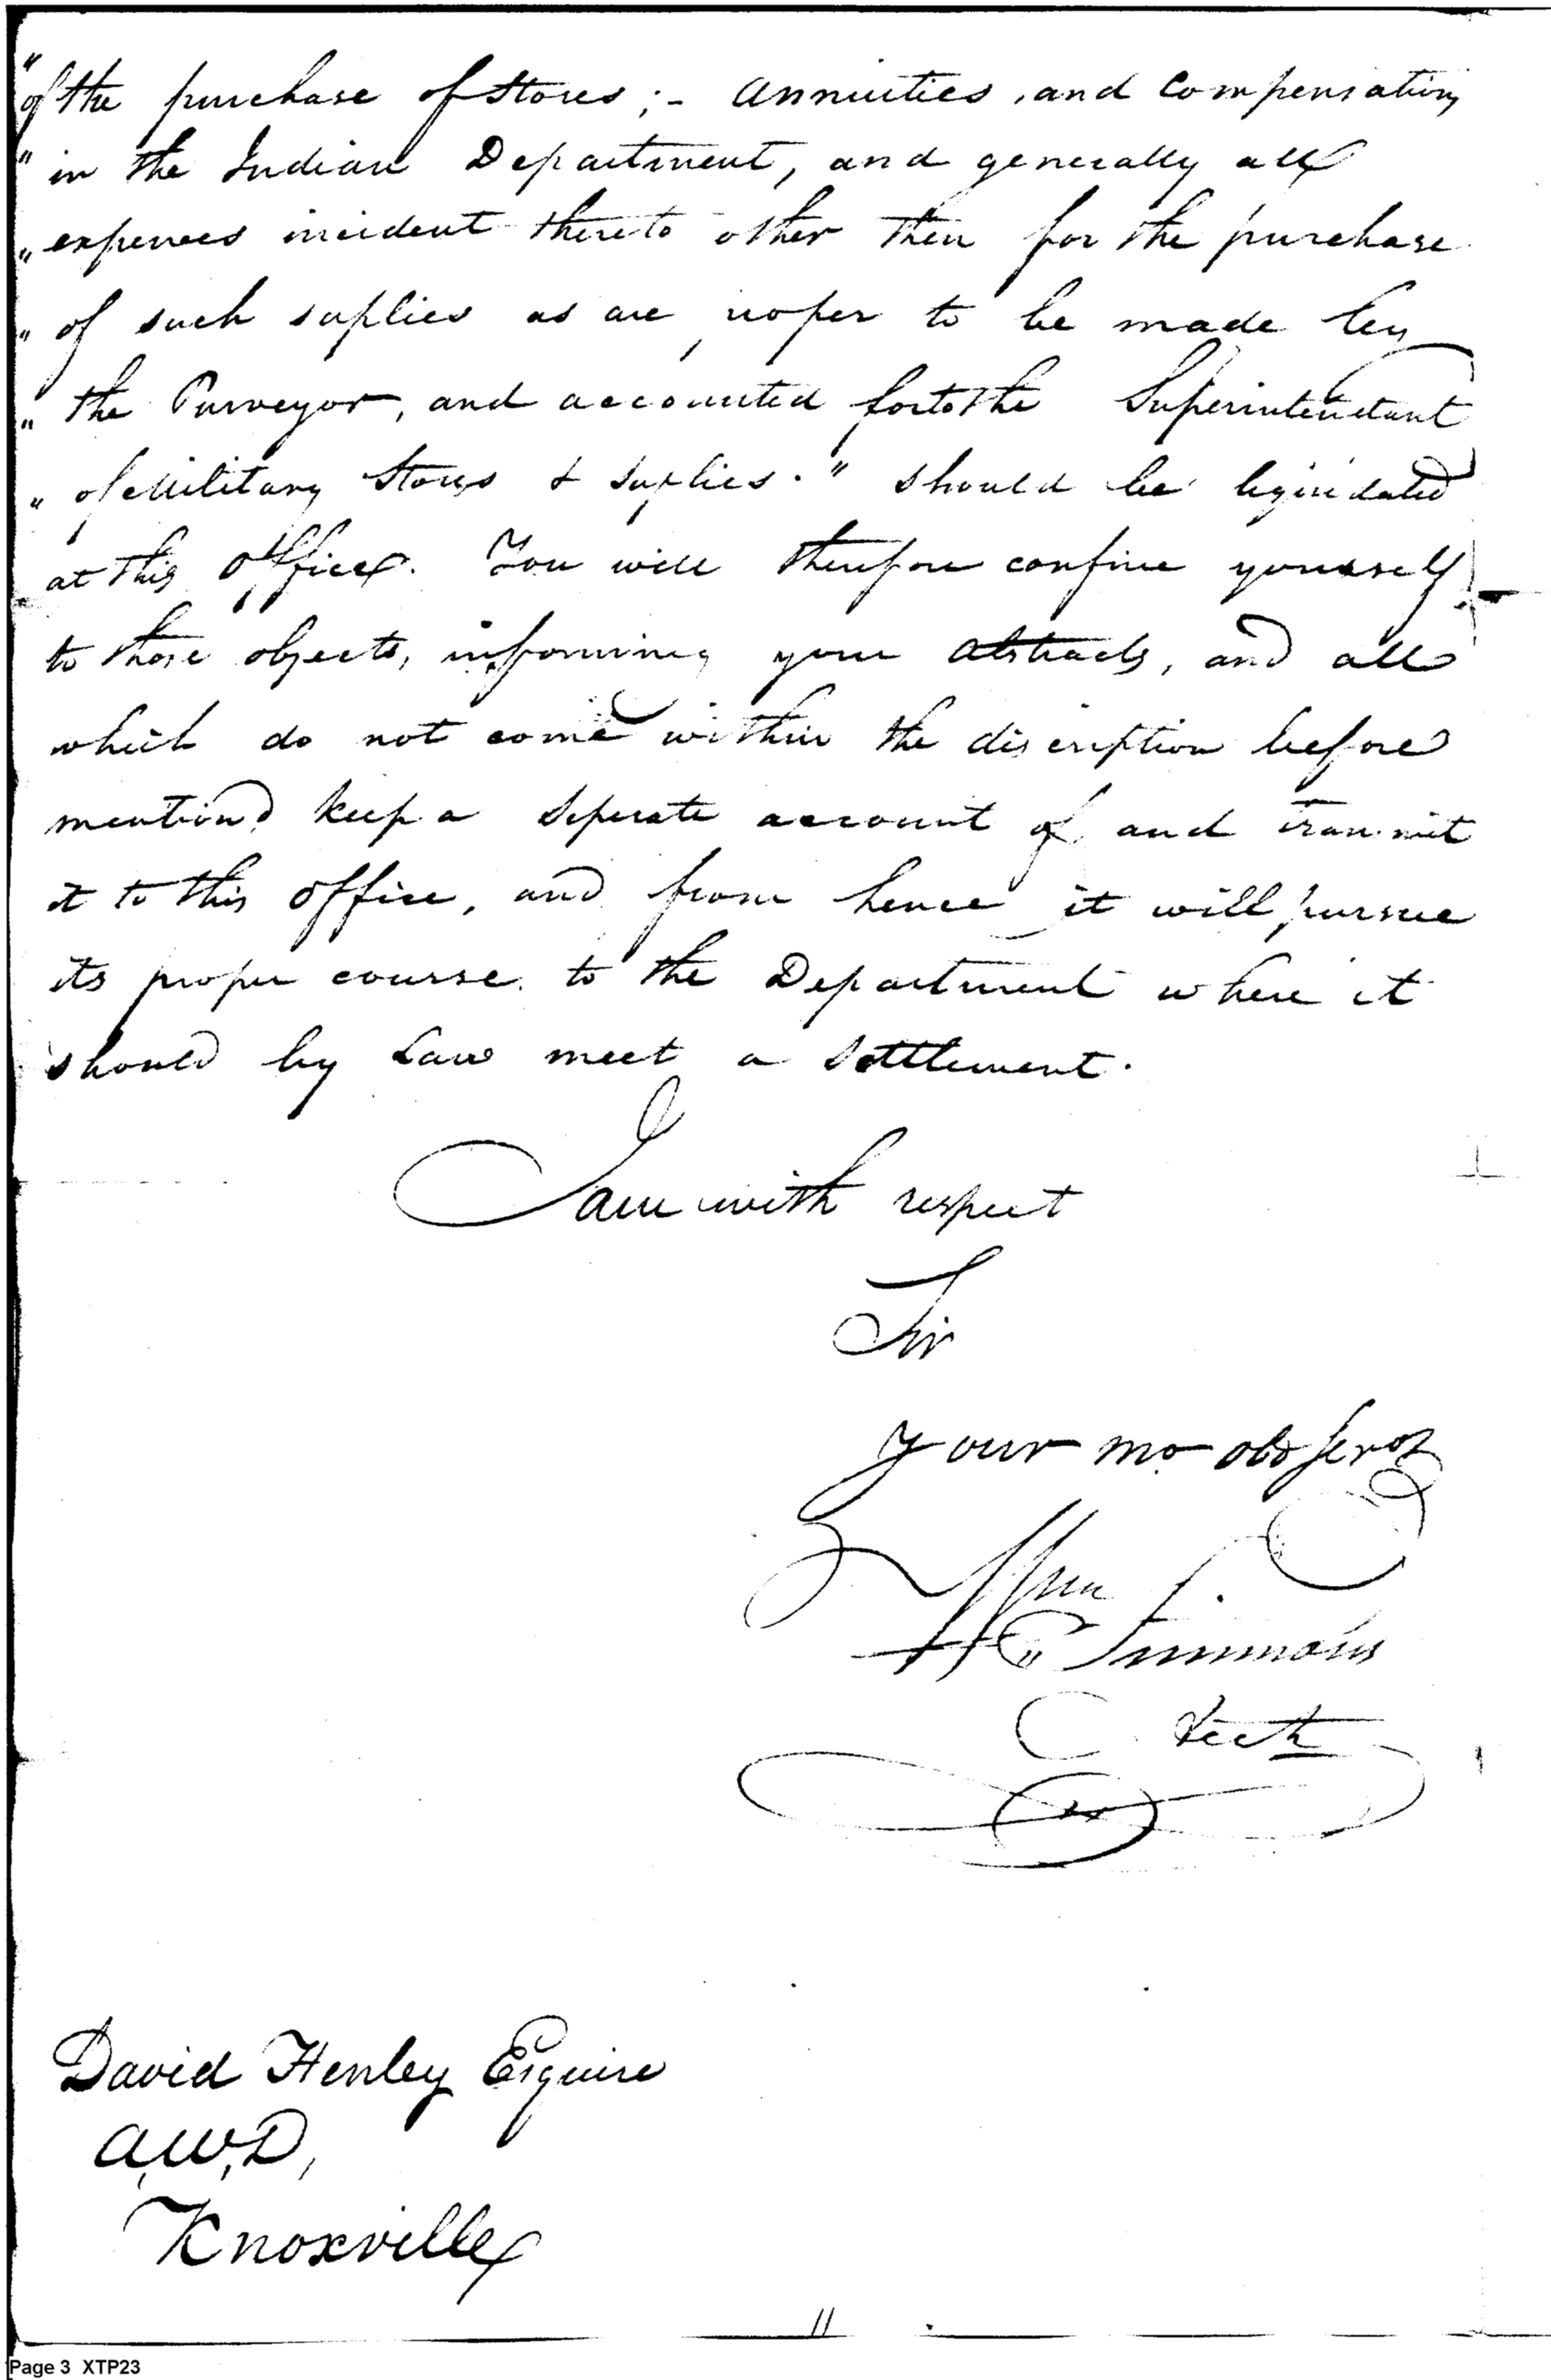 "of the purchase of Stores ;- Annuities, and Compensations
" in the Indian Department, and generally all
" expences incident thereto other then for the purchase
" of such suplies as are proper to be made by
" the Purveyor, and accounted for to the Superintendant
" of Military Stores & Suplies." should be liquidated
at this Office. You will therefore confine yourself
to those objects, in forming your Abstracts, and all
which do not come within the discription before
mention'd keep a Seperate account of and transmit
it to this Office, and from hence it will pursue
its proper course to the Department where it
should by Law meet a Settlement.
I am with respect
Sir
Your mo obd Servt
Wm Simmons
Acct
David Henley Esquire
A,W,D,
Knoxville
Page 3 XTP23